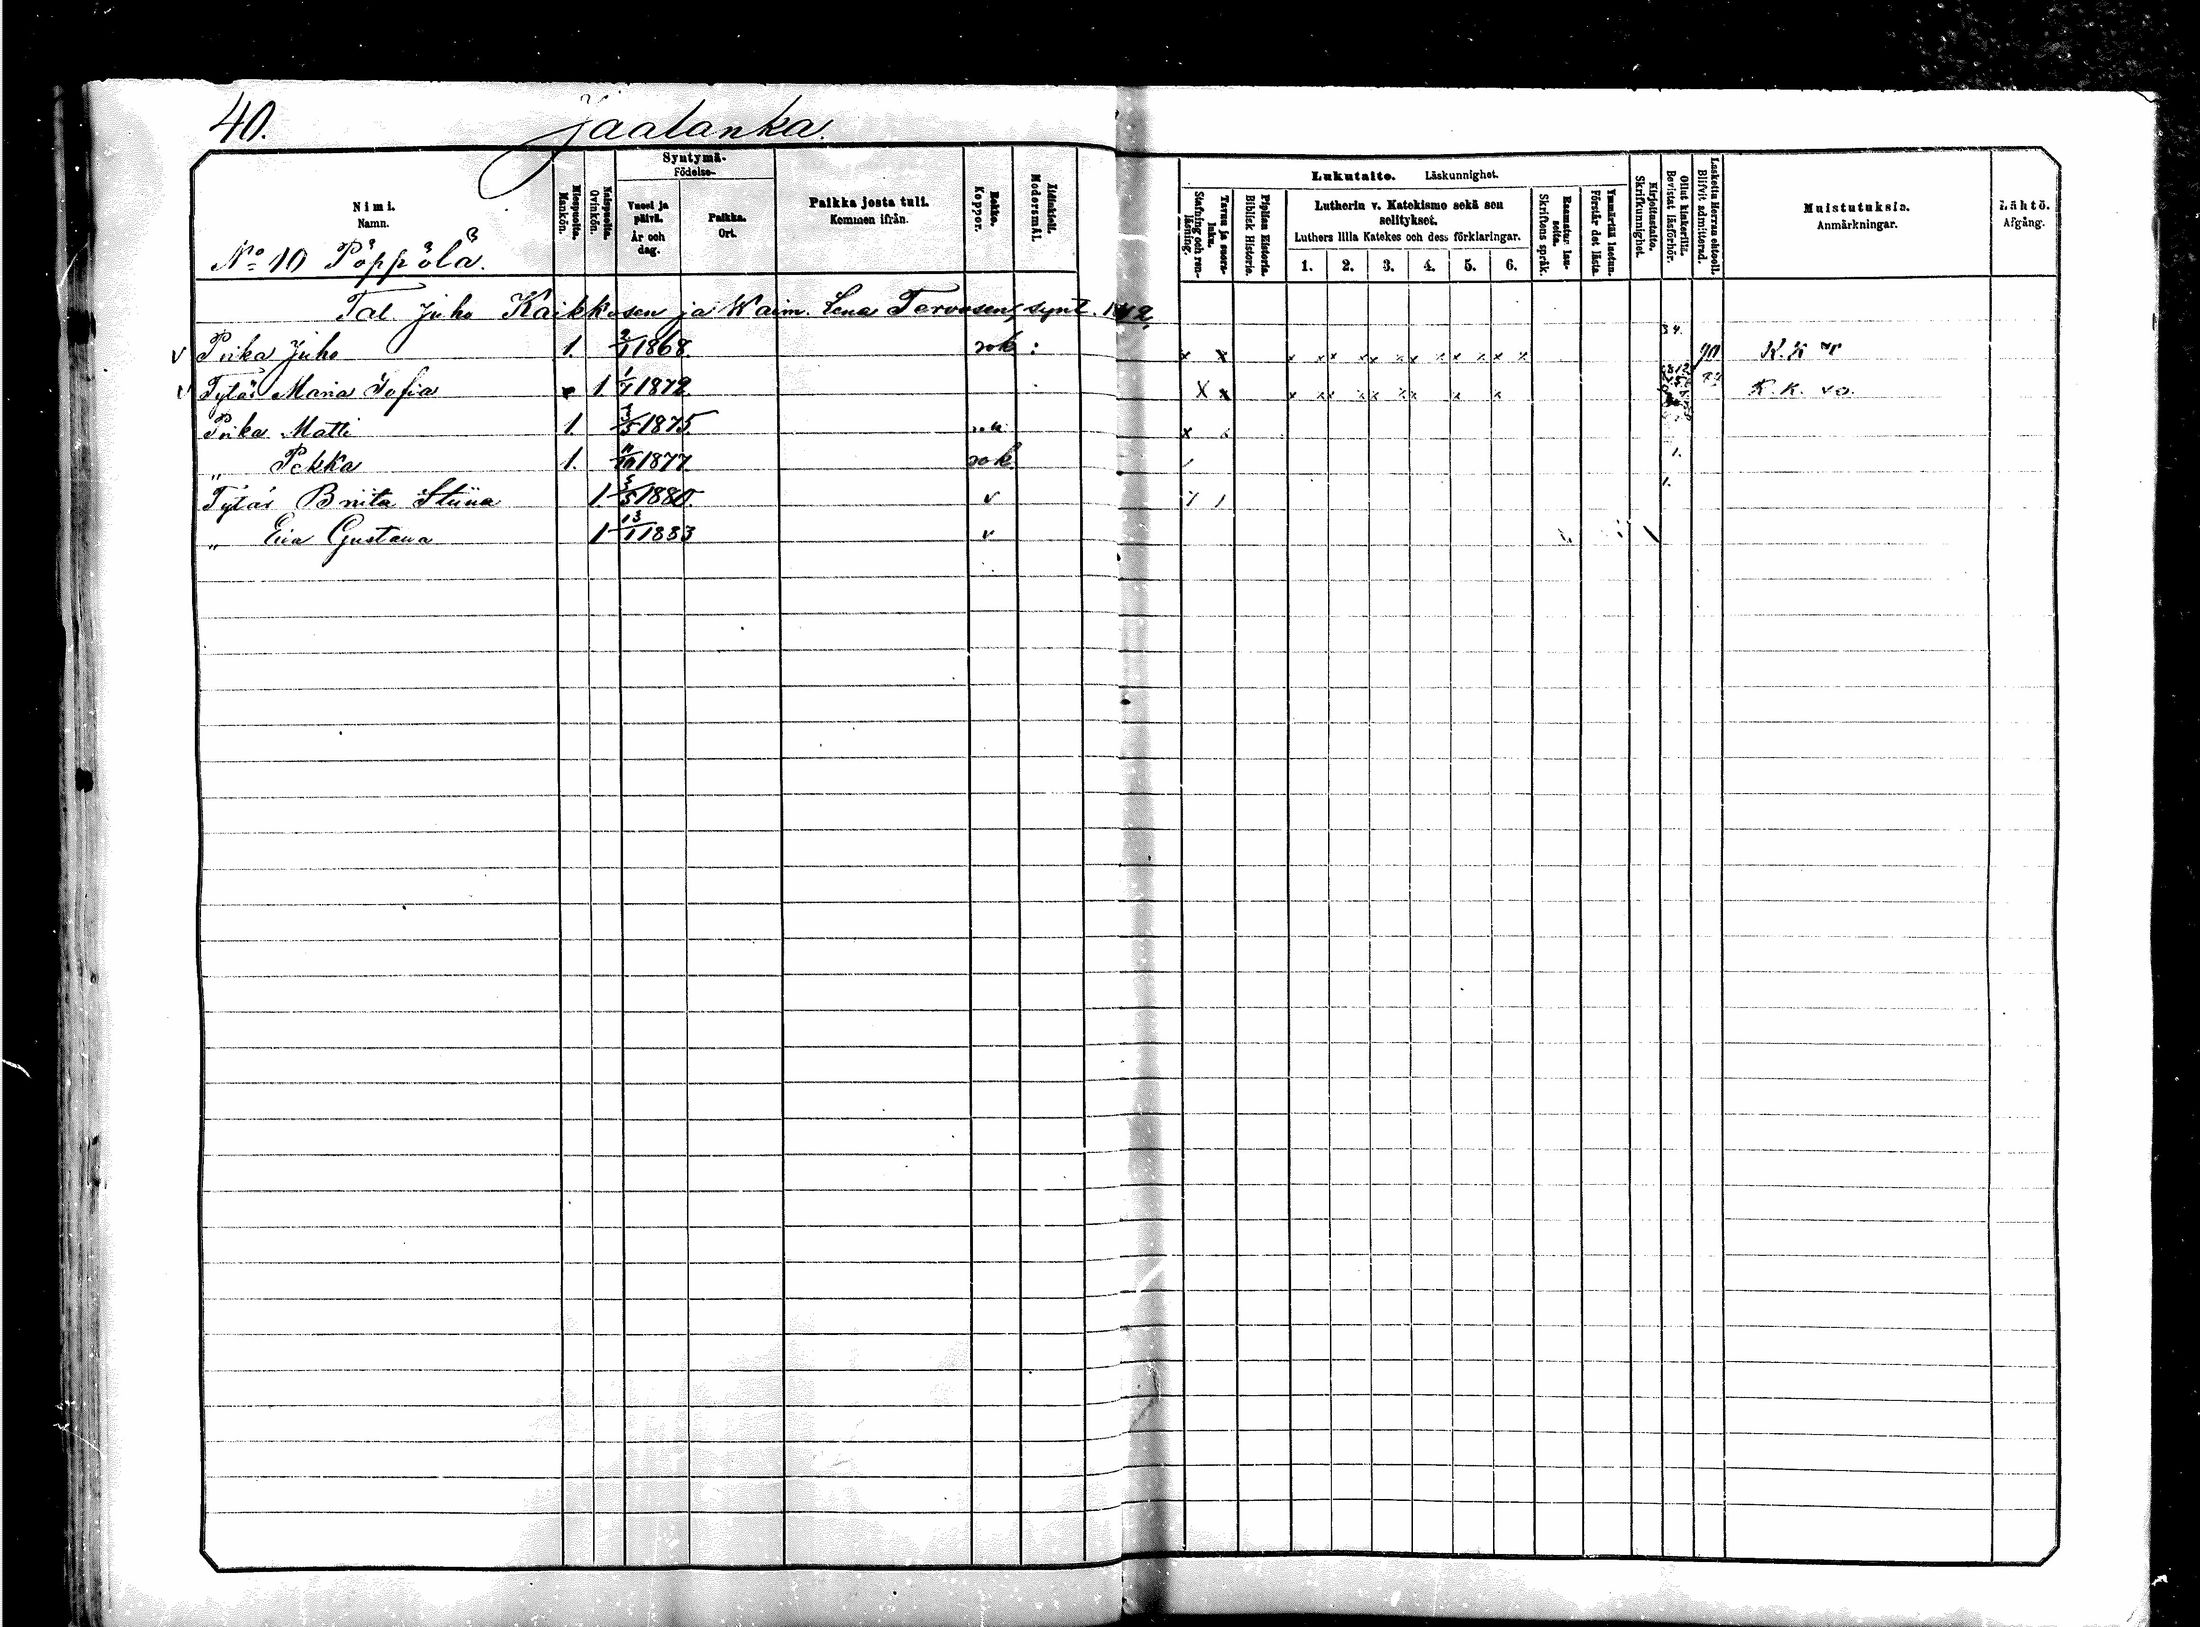 40.
Jaalanka.
Nimi.
Namn.
Miespuolia.
Mankön.
Naispuolia.
Qvinkön.
Syntymä-
Födelse-
Vuosi ja päivä.
År och dag.
Paikka.
Ort.
Paikka josta tuli.
Kommen ifrån.
Rokko.
Koppor.
Äidinkieli.
Modersmål.
Lukutaito. Läskunnighet.
Tavuu ja suora-luku.
Stafning och ren-läsning.
Piplian Historia.
Biblisk Historia.
Lutherin v. Katekismo sekä sen selitykset.
Luthers lilla Katekes och dess förklaringar.
1. 2. 3. 4. 5. 6.
Raamatun lau-seita.
Skriftens språk.
Ymmärtää luetun.
Förstår det lästa.
Kirjoitustaito.
Skrifkunnighet.
Ollut kinkerillä.
Bevistat läsförhör.
Laskettu Herran ehtooll.
Blifvit admitterad.
Muistutuksia.
Anmärkningar.
Lähtö.
Afgång.
No 10 Pöppölä.
Tal. Juho Kaikkosen ja Waim. Lena Tervosen, synt. 1842,
v Poika Juho 1. 2/1 1868. rok : x x 34. 90 K. K
v Tytär Maria Sofia 1 1/7 1872. X x K. K. vo.
Poika Matti 1. 3/5 1875. x
" Pekka 1. 11/10 1877. rok 1.
Tytär Briita Stiina 1. 3/5 1880. v 1.
" Eva Gustava 1 13/1 1883 v